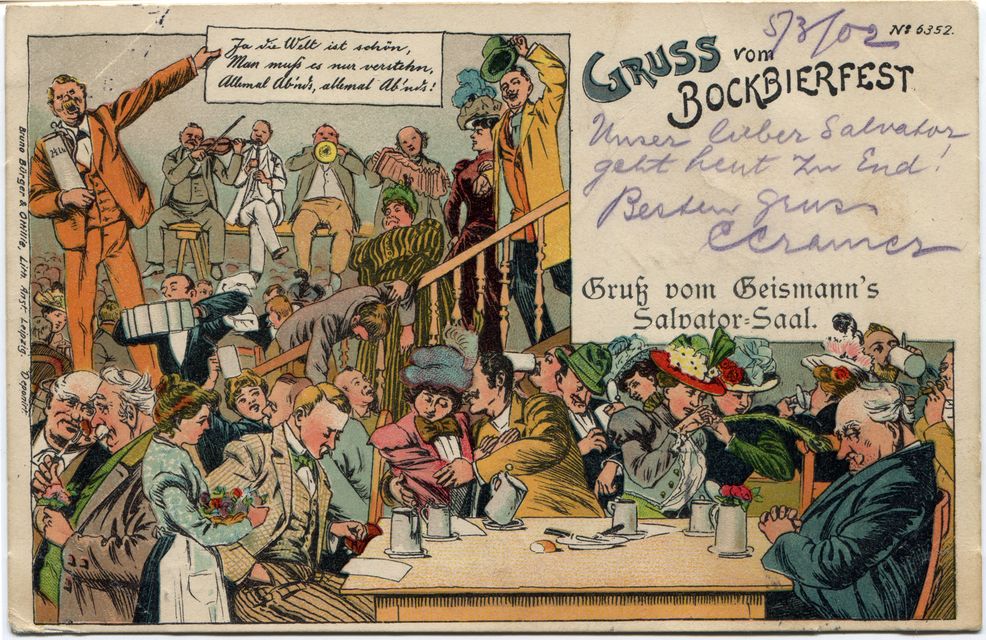 Ja die Welt ist schön,
Man muß es nur verstehn,
Allemal Ab'nds, allemal Ab'nds!
5/3/02
No 6352.
GRUSS vom
BOCKBIERFEST
Unser lieber Salvator
geht heut zu End!
Besten Gruss
CCramer
Gruß vom Geismann's
Salvator=Saal.
Bruno Bürger & Ottillie, Lith. Anst. Leipzig. Deponirt.